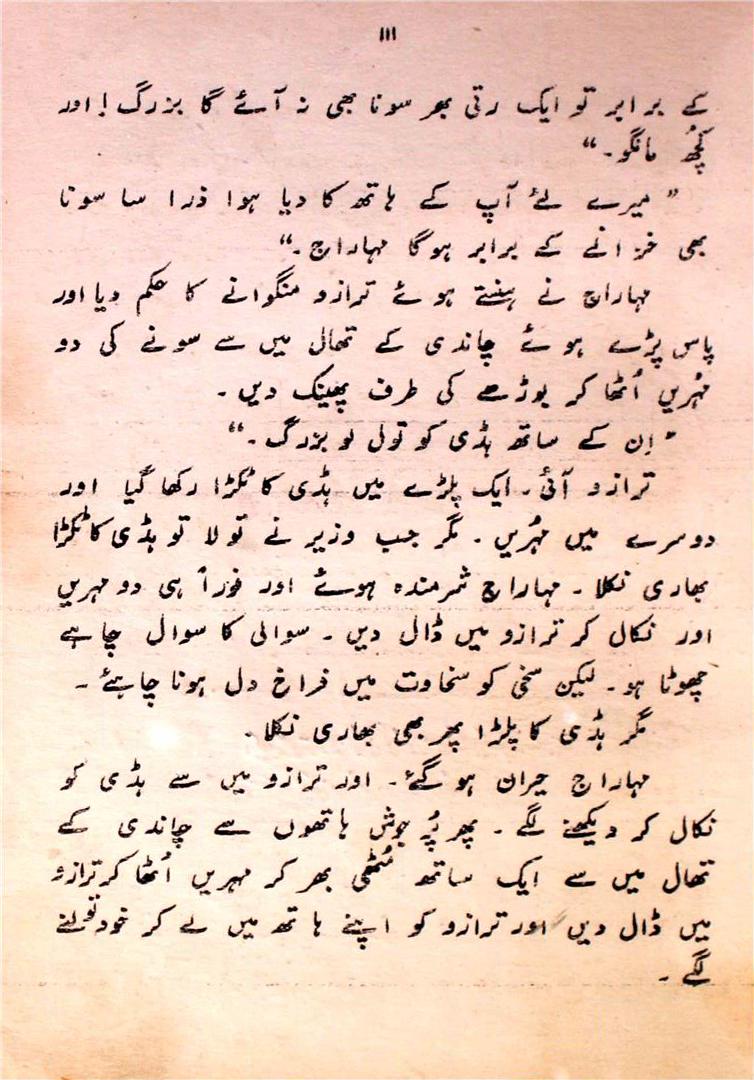 ۱۱۱
کے برابر تو ایک رتی بھر سونا بھی نہ آئے گا بزرگ! اور
کچھ مانگو۔“
”میرے لئے آپ کے ہاتھ کا دیا ہوا ذرا سا سونا
بھی خزانے کے برابر ہوگا مہاراج۔“
مہاراج نے ہنستے ہوئے ترازو منگوانے کا حکم دیا اور
پاس پڑے ہوئے چاندی کے تھال میں سے سونے کی دو
مہُریں اُٹھا کر بوڑھے کی طرف پھینک دیں۔
”اِن کے ساتھ ہڈی کو تول لو بزرگ۔“
ترازو آئی۔ ایک پلڑے میں ہڈی کا ٹکڑا رکھا گیا اور
دوسرے میں مہُریں۔ مگر جب وزیر نے تولا تو ہڈی کا ٹکڑا
بھاری نکلا۔ مہاراج شرمندہ ہوئے اور فوراً ہی دو مہریں
اور نکال کر ترازو میں ڈال دیں۔ سوالی کا سوال چاہے
چھوٹا ہو۔ لیکن سخی کو سخاوت میں فراخ دل ہونا چاہئے۔
مگر ہڈی کا پلڑا پھر بھی بھاری نکلا۔
مہاراج حیران ہو گئے۔ اور ترازو میں سے ہڈی کو
نکال کر دیکھنے لگے۔ پھر پُر جوش ہاتھوں سے چاندی کے
تھال میں سے ایک ساتھ مُٹھی بھر کر مہریں اُٹھا کر ترازو
میں ڈال دیں اور ترازو کو اپنے ہاتھ میں لے کر خود تولنے
لگے۔